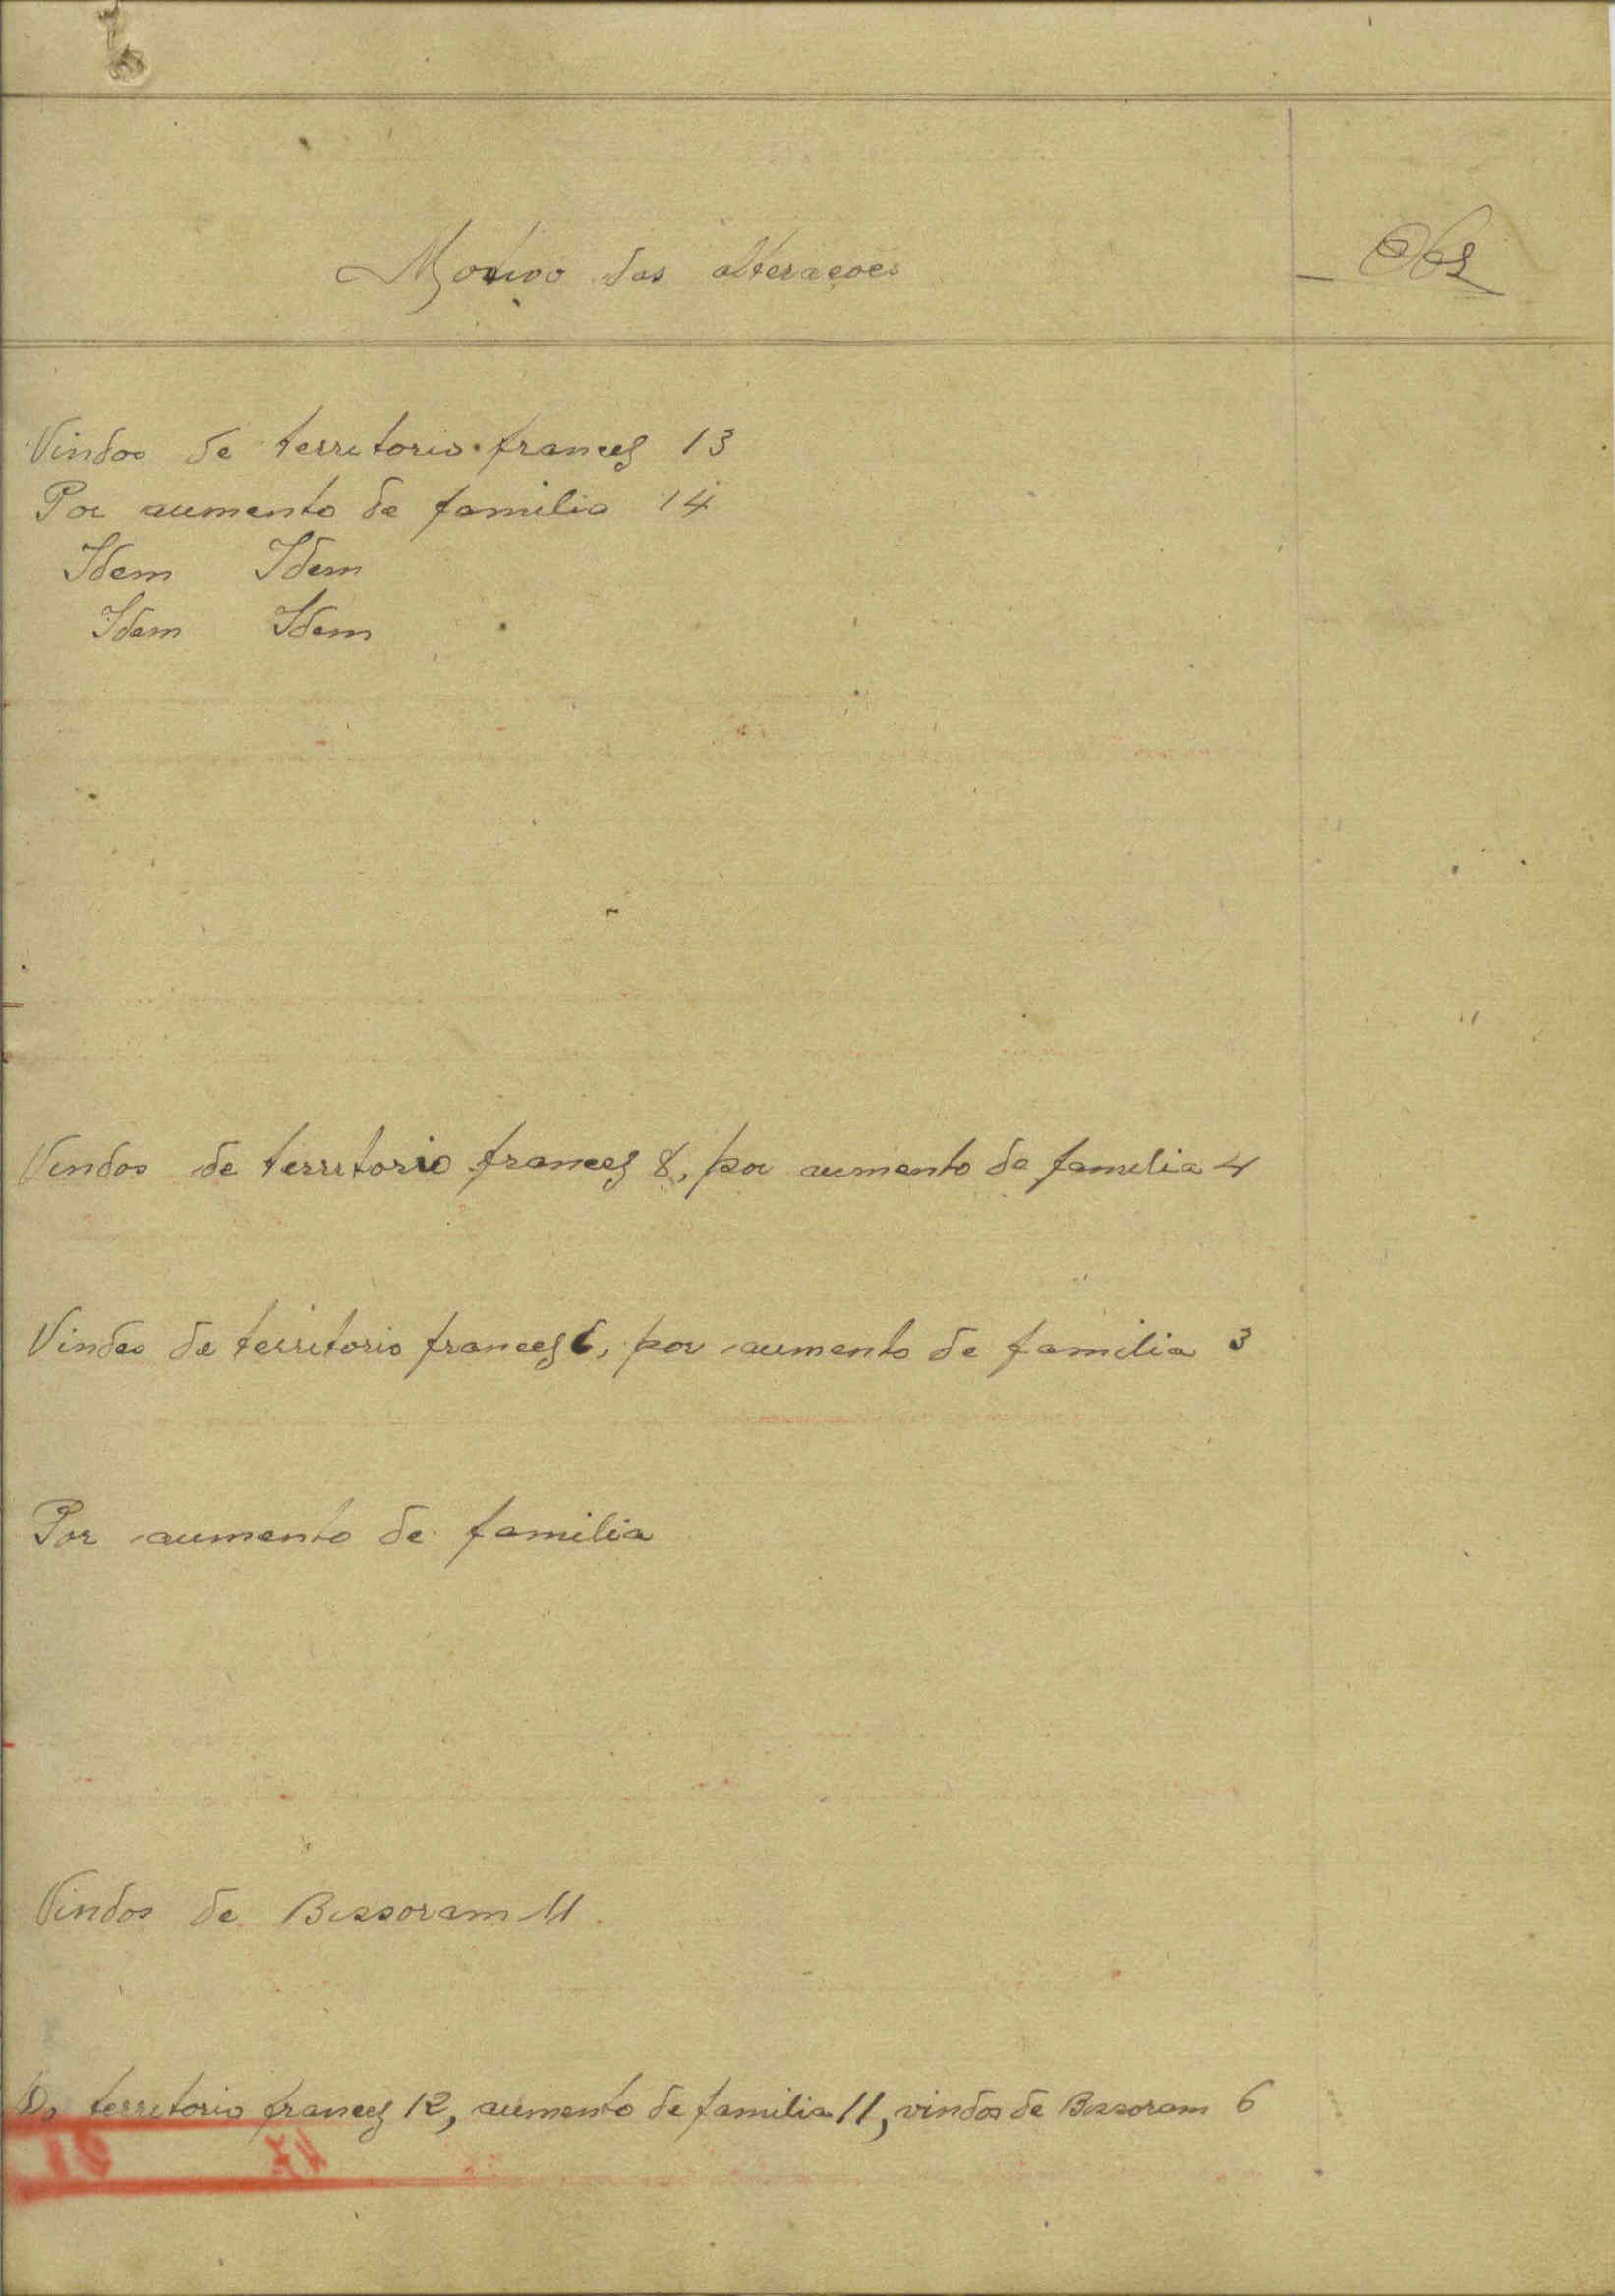 Motivo das alterações
Obs
Vindos de territorio francez 13
Por aumento de familia 14
Idem Idem
Idem Idem
Vindos de territorio francez 8, por aumento de familia 4
Vindos de territorio francez 6, por aumento de familia 3
Por aumento de familia
Vindos de Bissoram 11
Do territorio francez 12, aumento de familia 11, vindos de Bissoram 6